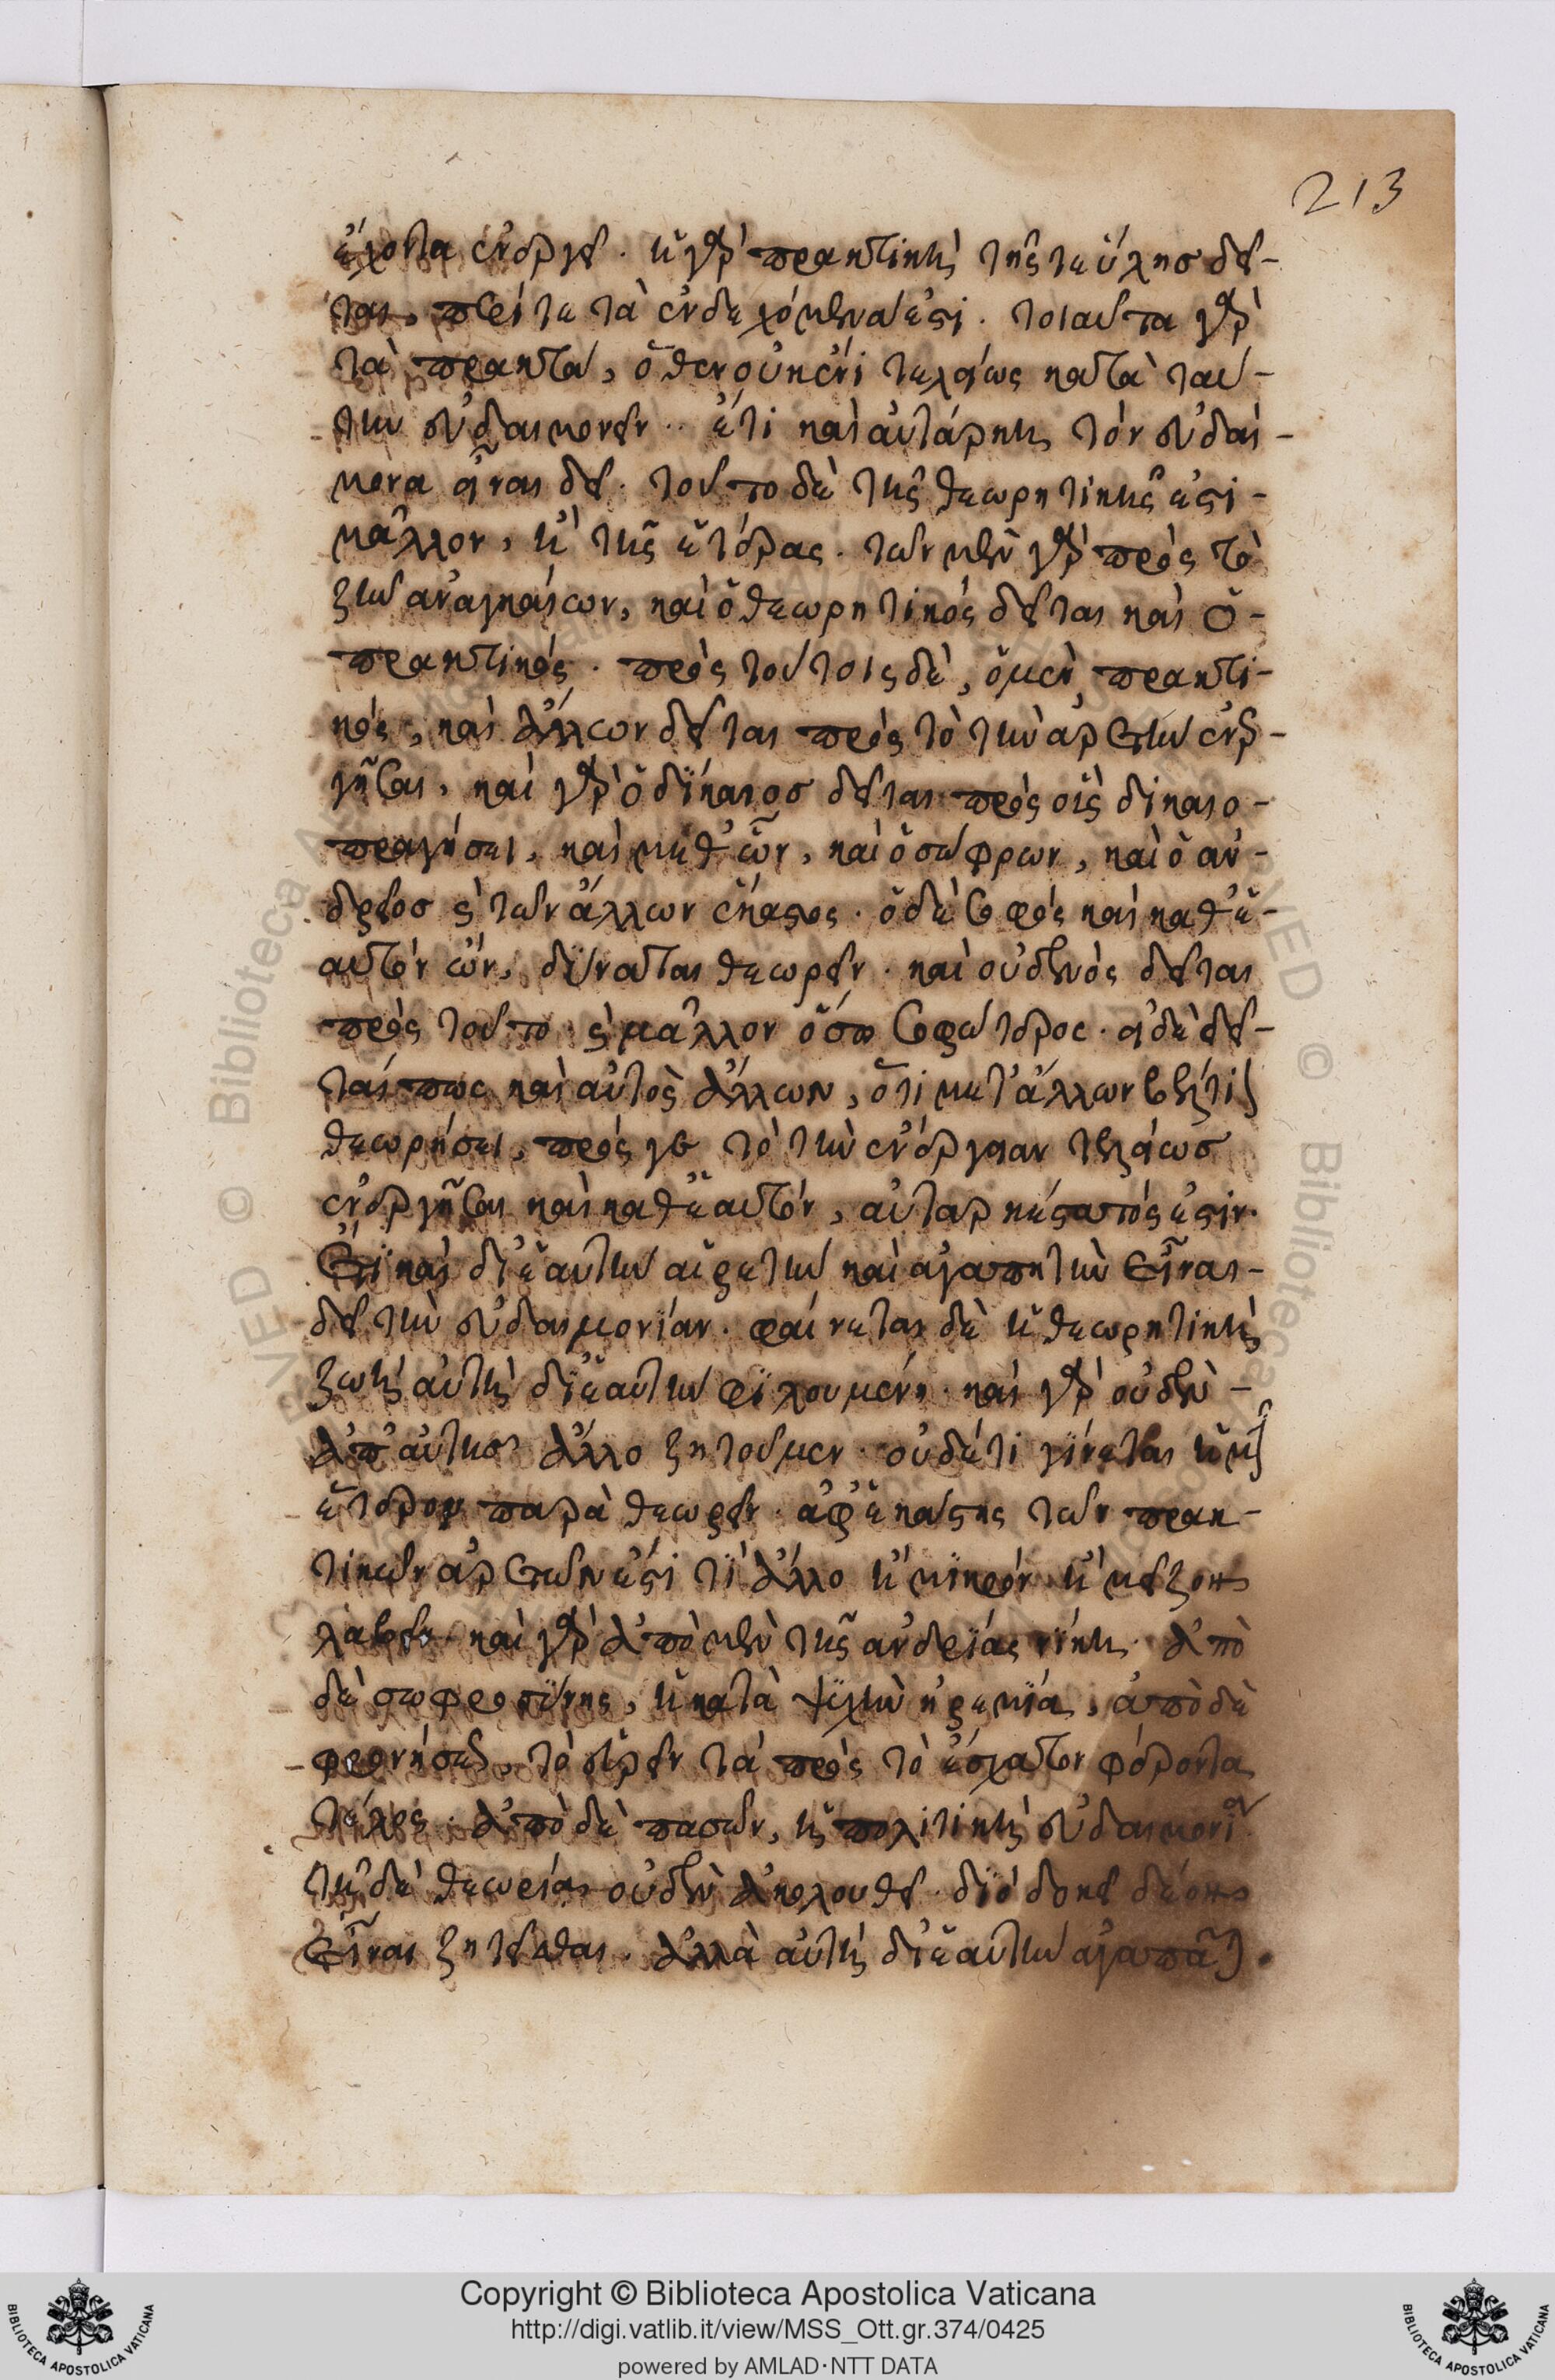 213
ἔχοντα ἐνεργεῖ. ἡ γὰρ πρακτικὴ τῆς τε ὕλης δεῖ-
ται, περί τε τὰ ἐνδεχόμενα ἐστι. τοιαῦτα γὰρ
τὰ πρακτὰ, ὅθεν οὐκ ἔνι τελείως κατὰ ταύ-
την εὐδαιμονεῖν. ἔτι καὶ αὐτάρκη τὸν εὐδαί-
μονα εἶναι δεῖ. τοῦτο δὲ τῆς θεωρητικῆς ἐστι
μᾶλλον, ἢ τῆς ἑτέρας. τῶν μὲν γὰρ πρὸς τὸ
ζῆν ἀναγκαίων, καὶ ὁ θεωρητικός δεῖται καὶ ὁ
πρακτικός. πρὸς τούτοις δὲ, ὁ μὲν πρακτι-
κός, καὶ ἄλλων δεῖται πρὸς τὸ τὴν ἀρετὴν ἐνερ-
γῆσαι, καὶ γὰρ ὁ δίκαιος δεῖται πρὸς οἷς δικαιο-
πραγήσει, καὶ μεθ' ὧν, καὶ ὁ σώφρων, καὶ ὁ ἀν-
δρεῖος καὶ τῶν ἄλλων ἕκαστος. ὁ δὲ σοφός καὶ καθ' ἑ-
αυτὸν ὤν, δύναται θεωρεῖν. καὶ οὐδενὸς δεῖται
πρὸς τοῦτο καὶ μᾶλλον ὅσῳ σοφώτερος. εἰ δὲ δεῖ-
ταί πως καὶ αὐτὸς ἄλλων, ὅτι μετ' ἄλλων βέλτιον
θεωρήσει, πρὸς γε τὸ τὴν ἐνέργειαν τελείως
ἐνεργῆσαι καὶ καθ' ἑαυτόν, αὐτάρκης αὐτός ἐστιν.
ἔτι καὶ δι' ἑαυτὴν αἱρετὴν καὶ ἀγαπητὴν εἶναι
δεῖ τὴν εὐδαιμονίαν. φαίνεται δὲ ἡ θεωρητικὴ
ζωὴ αὐτὴ δι' ἑαυτὴν φιλουμένη. καὶ γὰρ οὐδὲν
ἀπ' αὐτῆς ἄλλο ζητοῦμεν. οὐδέ τι γίνεται ἡμῖν
ἕτερον παρὰ θεωρεῖν. ἀφ' ἑκάστης τῶν πρακ-
τικῶν ἀρετῶν ἐστί τι ἄλλο ἢ μικρόν ἢ μεῖζον
λαβεῖν. καὶ γὰρ ἀπὸ μὲν τῆς ἀνδρίας νίκη. ἀπὸ
δὲ σωφροσύνης, ἡ κατὰ ψυχὴν ἠρεμία, ἀπὸ δὲ
φρονήσεως, τὸ εὑρεῖν τὰ πρὸς τὸ ἔσχατον φέροντα
τέλος. ἀπὸ δὲ πασῶν, ἡ πολιτικὴ εὐδαιμονία
τῇ δὲ θεωρίᾳ οὐδὲν ἀκολουθεῖ. διὸ δοκεῖ δέον
εἶναι ζητεῖσθαι. ἀλλὰ αὐτὴ δι' ἑαυτὴν ἀγαπᾶται.
Copyright © Biblioteca Apostolica Vaticana
http://digi.vatlib.it/view/MSS_Ott.gr.374/0425
powered by AMLAD·NTT DATA